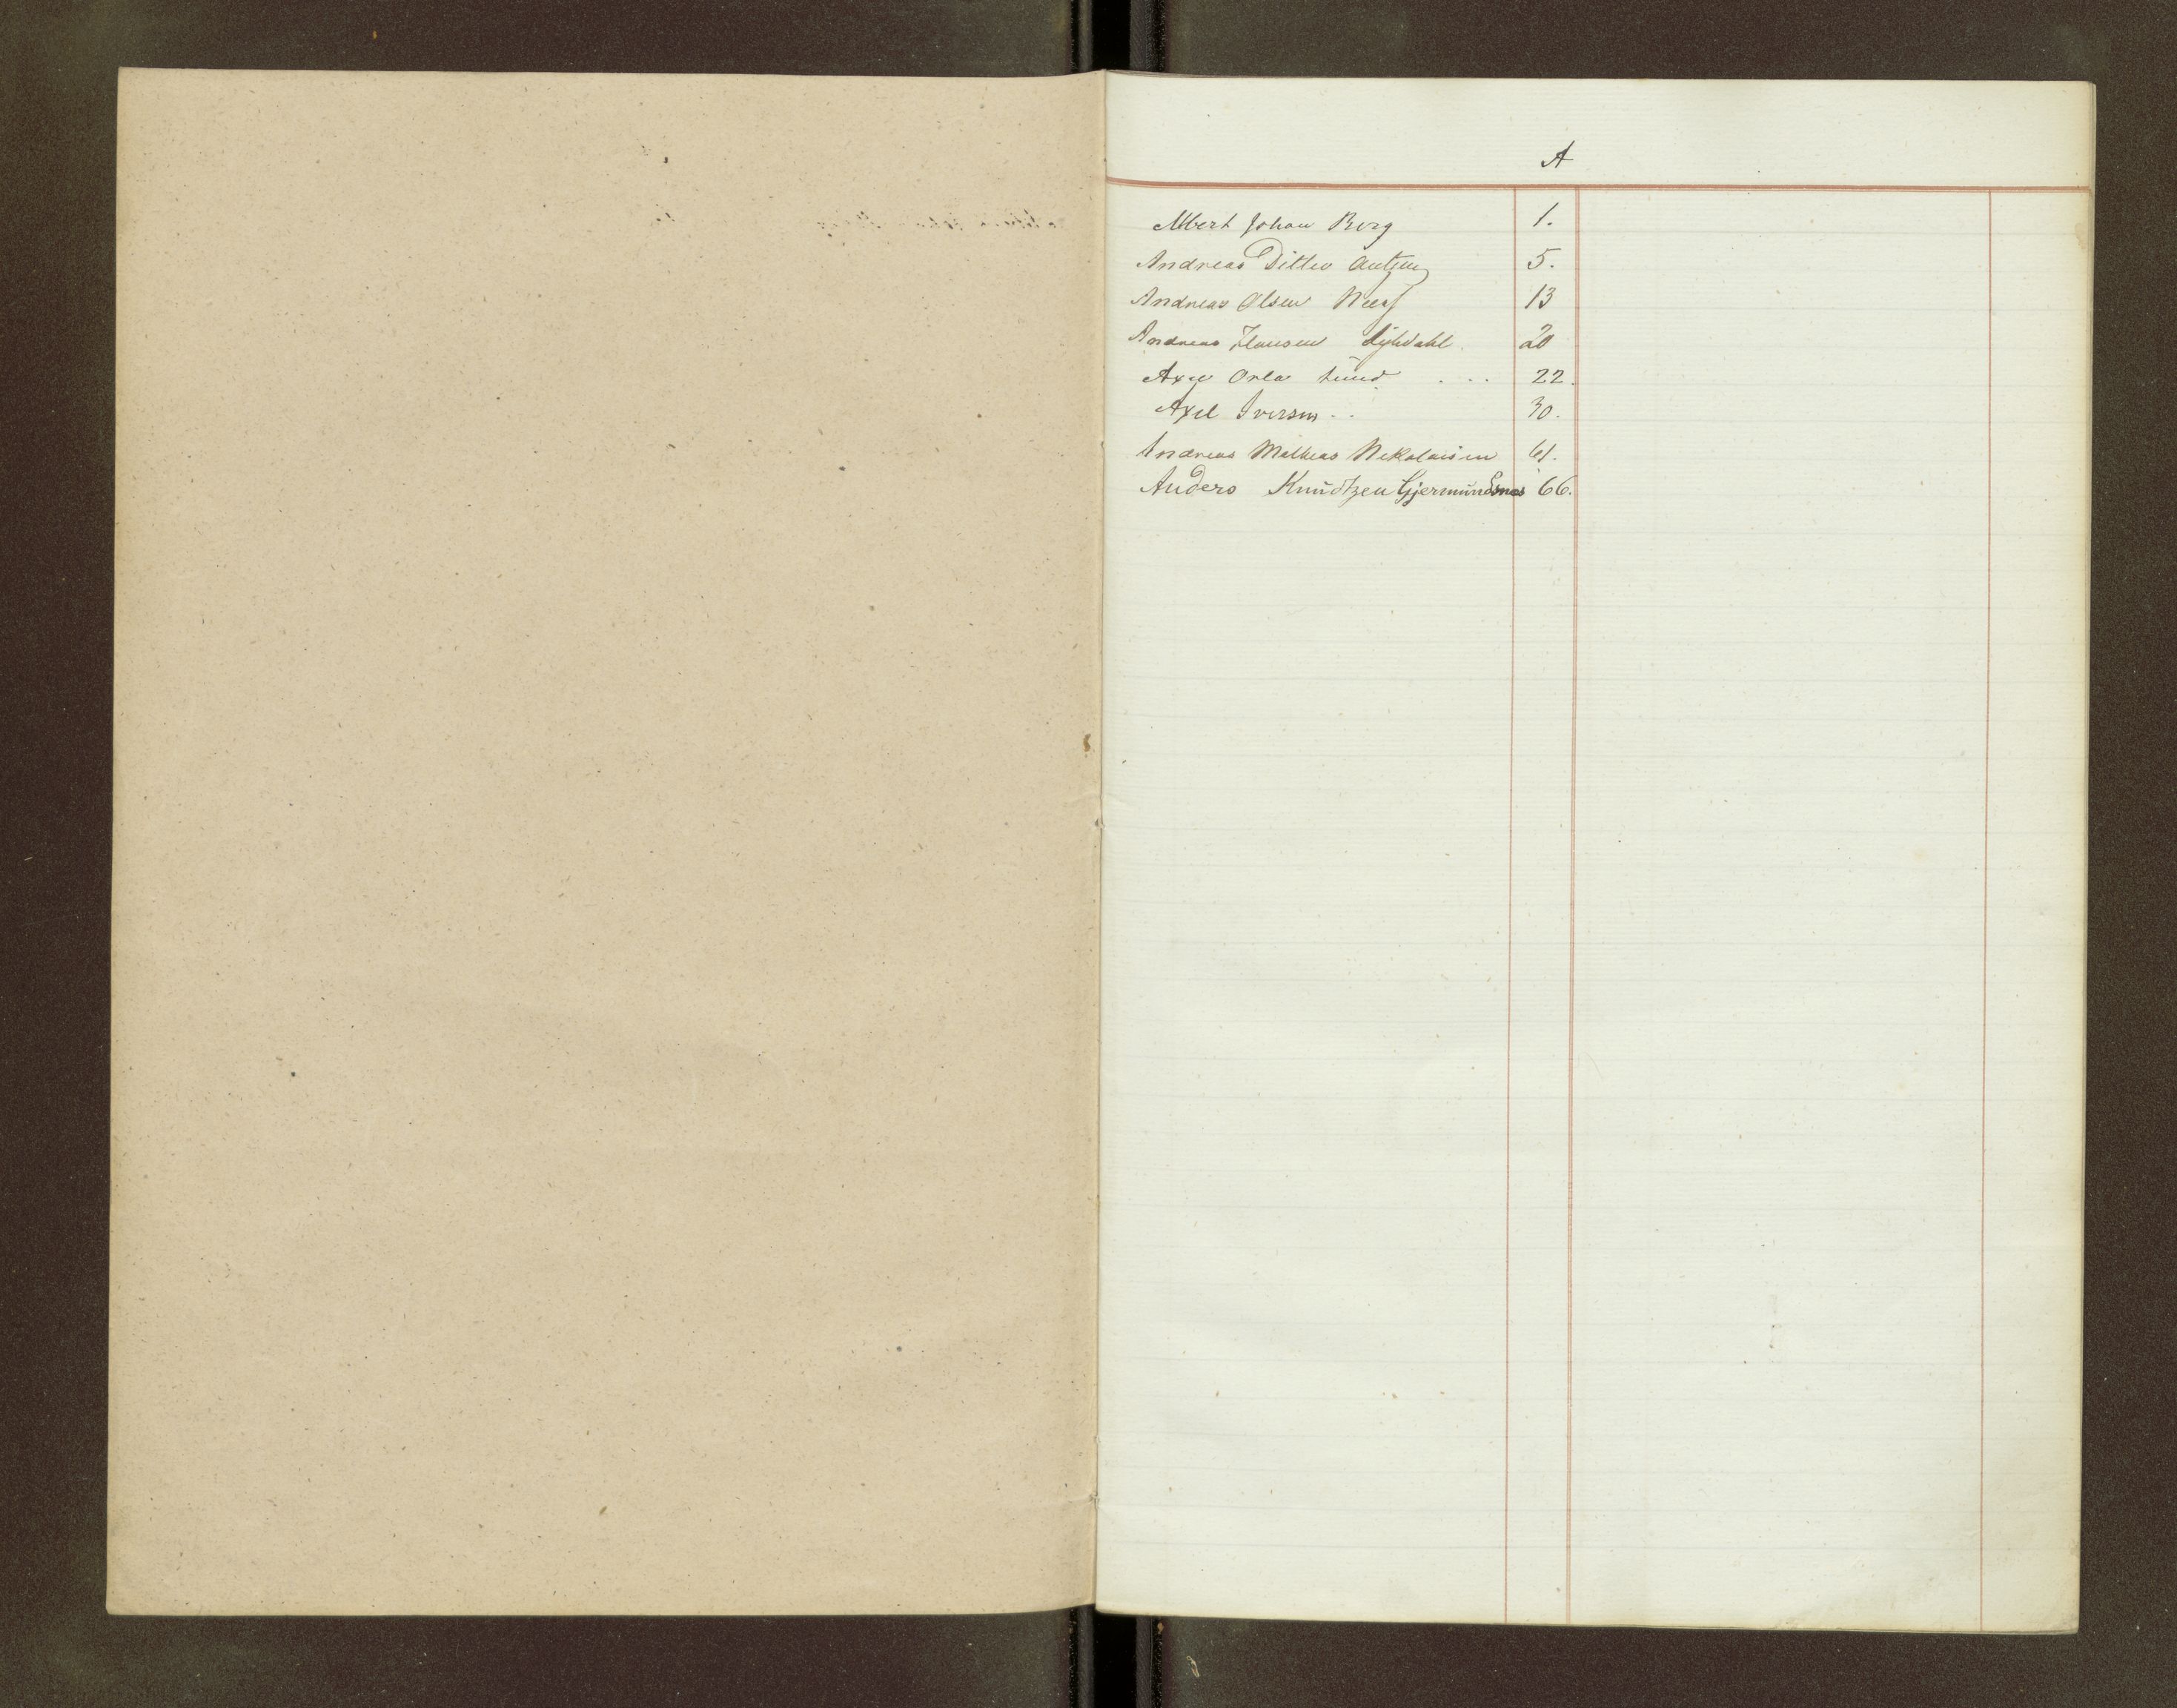 A
Albert Johan Berg 1.
Andreas Ditlev 5.
Andreas Olsen 13
Andreas Hansen 20
Axel Orla Lund . . . 22.
Axel Iversen . . 30.
Andreas Mathias Nikolaisen 61.
Anders Knudtzen Gjermundsnes 66.